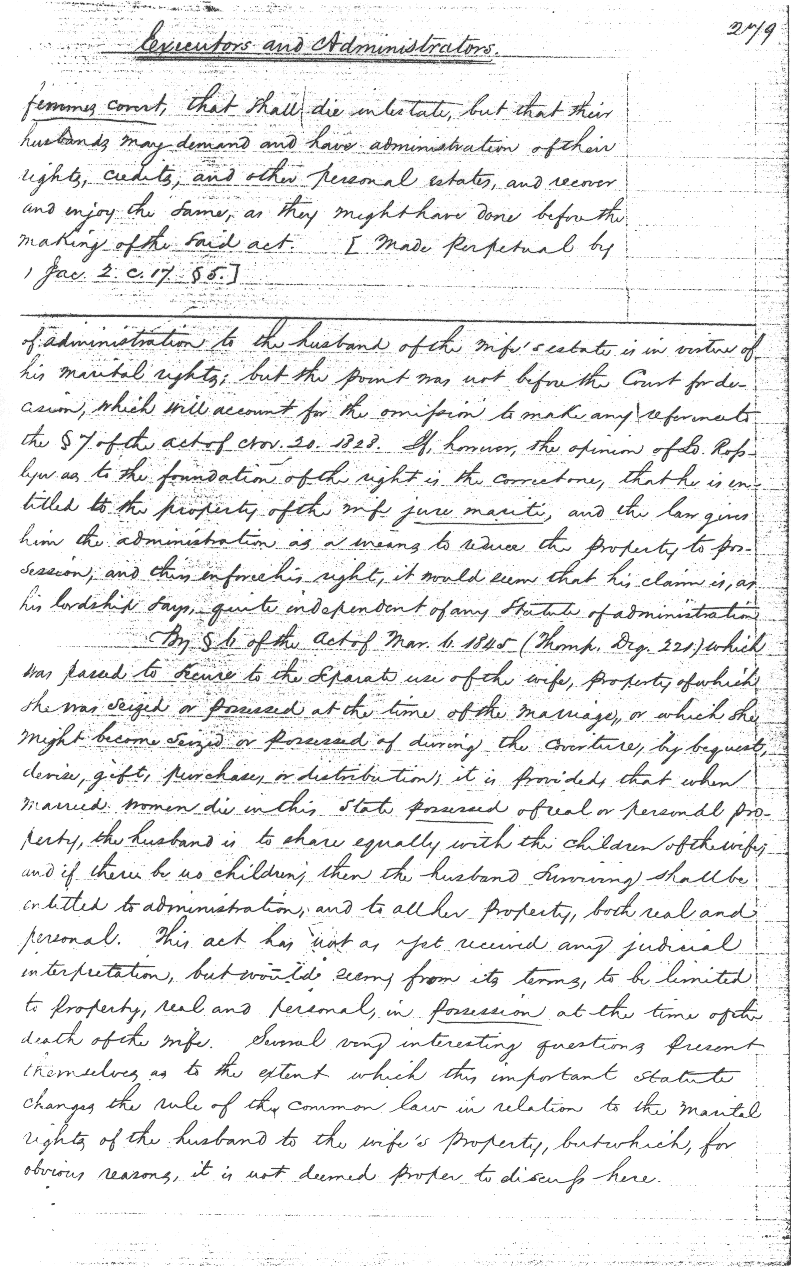 279
Executors and Administrators.
femmes covert, that shall die intestate, but that their
husbands may demand and have administration of their
rights, credits, and other personal estates, and recover
and enjoy the same, as they might have done before the
making of the said act. [Made perpetual by
1 Jac. 2. c. 17. § 5.]
of administration to the husband of the wife's estate is in virtue of
his marital rights; but the point was not before the Court for de-
cision, which will account for the omission to make any reference to
the § 7 of the act of Nov. 20. 1828. If, however, the opinion of Ld. Ross-
lyn as to the foundation of the right is the correct one, that he is en-
titled to the property of the wife jure mariti, and the law gives
him the administration as a means to reduce the property to pos-
session, and thus enforce his right, it would seem that his claim is, as
his lordship says, quite independent of any Statute of administration
By § 6 of the Act of Mar. 6. 1845 (Thomp. Dig. 221.) which
was passed to secure to the separate use of the wife, property of which
she was seized or possessed at the time of the marriage, or which she
might become seized or possessed of during the coverture, by bequest,
devise, gift, purchase, or distribution; it is provided, that when
married women die in this State possessed of real or personal pro-
perty, the husband is to share equally with the children of the wife;
and if there be no children, then the husband surviving shall be
entitled to administration, and to all her property, both real and
personal. This act has not as yet received any judicial
interpretation, but would seem, from its terms, to be limited
to property, real and personal, in possession at the time of the
death of the wife. Several very interesting questions present
themselves as to the extent which this important statute
changes the rule of the common law in relation to the marital
rights of the husband to the wife's property, but which, for
obvious reasons, it is not deemed proper to discuss here.